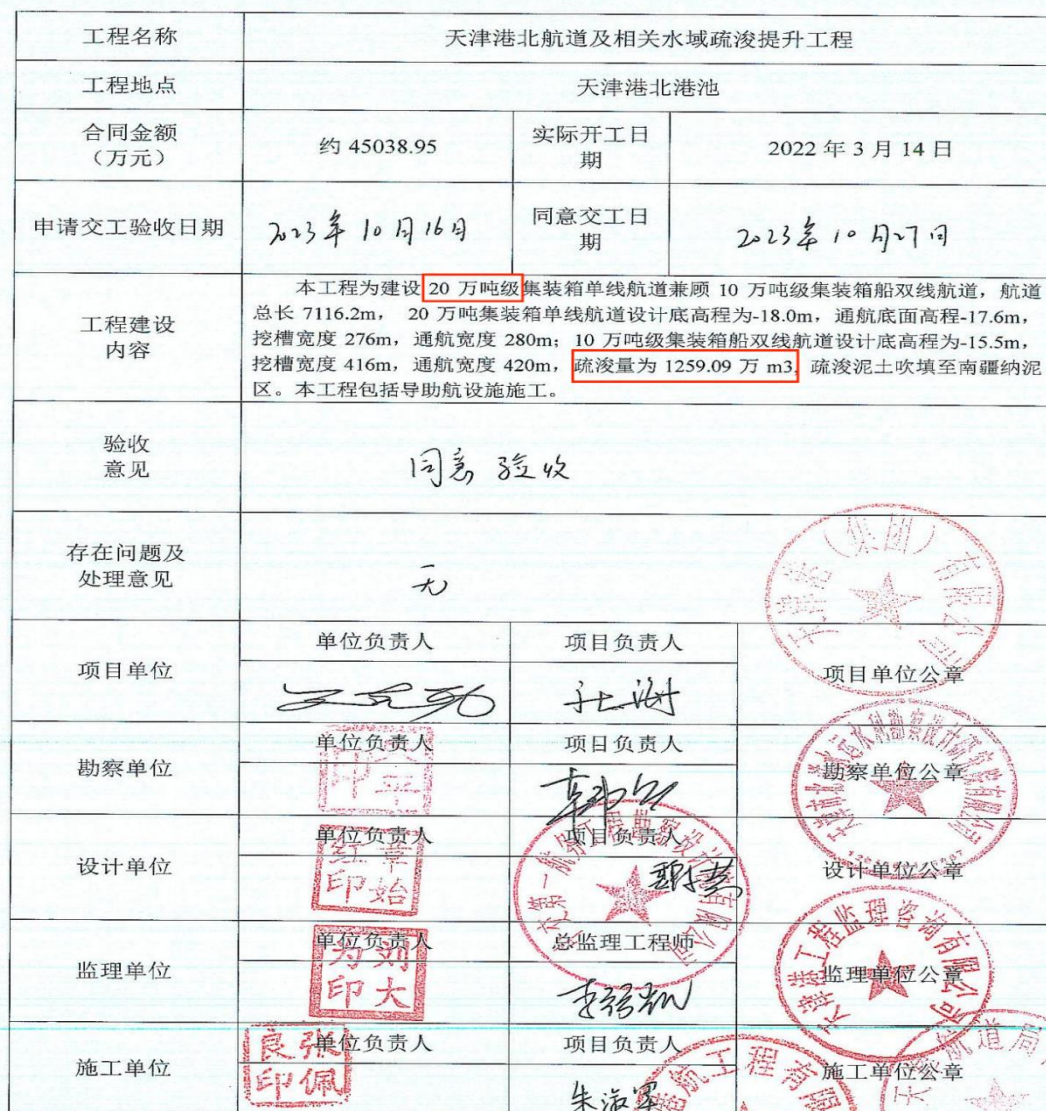 工程名称
天津港北航道及相关水域疏浚提升工程
工程地点
天津港北港池
合同金额
（万元）
约 45038.95
实际开工日
期
2022 年 3 月 14 日
申请交工验收日期
2023年 10月16日
同意交工日
期
2023年 10月27日
工程建设
内容
本工程为建设 20 万吨级集装箱单线航道兼顾 10 万吨级集装箱船双线航道，航道
总长 7116.2m， 20 万吨集装箱单线航道设计底高程为-18.0m，通航底面高程-17.6m，
挖槽宽度 276m，通航宽度 280m；10 万吨级集装箱船双线航道设计底高程为-15.5m，
挖槽宽度 416m，通航宽度 420m，疏浚量为 1259.09 万 m3，疏浚泥土吹填至南疆纳泥
区。本工程包括导助航设施施工。
验收
意见
同意 验收
存在问题及
处理意见
无
（集团）有限公司
项目单位
单位负责人
项目负责人
项目单位公章
勘察单位
单位负责人
项目负责人
勘察单位公章
设计单位
单位负责人
项目负责人
设计单位公章
章
红
始
印
监理单位
单位负责人
总监理工程师
监理单位公章
天津港工程监理咨询有限公司
刘
大
为
印
施工单位
单位负责人
项目负责人
施工单位公章
张
佩
良
印
航工程有限
航道局